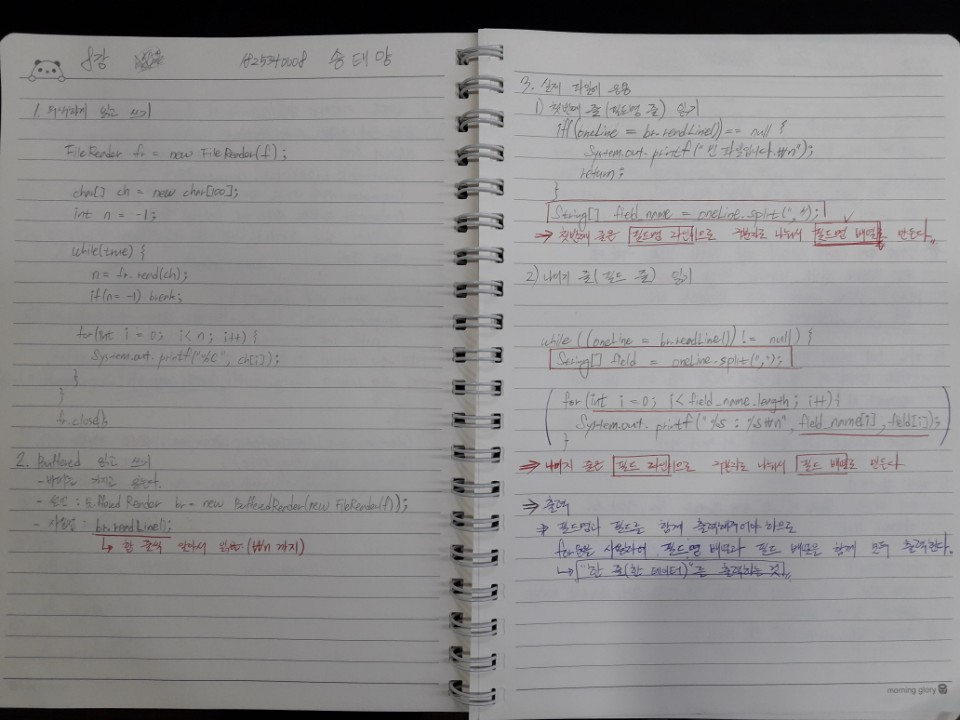 8강 182534008 송태양
1. 무식하게 읽고 쓰기
FileReader fr = new FileReader(f);
char[] ch = new char[100];
int n = -1;
while(true) {
n = fr.read(ch);
if(n= -1) break;
for(int i = 0; i < n; i++) {
System.out.printf("%c", ch[i]);
}
}
fr.close();
2. Buffered 읽고 쓰기
- 버퍼를 가지고 있는다.
- 선언 : Buffered Reader br = new BufferedReader(new FileReader(f));
- 사용법 : br.readLine();
↳ 한 줄씩 알아서 읽음 (₩n 까지)
3. 실제 파일에 응용
1) 첫번째 줄(필드명 줄) 읽기
if((oneLine = br.readLine()) == null {
System.out.printf("빈 파일입니다.₩n");
return;
}
String[] field_name = oneLine.split(",");
⇒ 첫번째 줄은 필드명 라인으로 구분자로 나눠서 필드명 배열로 만든다.
2) 나머지 줄(필드 줄) 읽기
while ((oneLine = br.readLine()) != null) {
String[] field = oneLine.split(",");
for(int i = 0; i < field_name.length; i++){
System.out.printf("%s : %s₩n", field_name[i], field[i]);
}
⇒ 나머지 줄은 필드 라인으로 구분자로 나눠서 필드 배열로 만든다
⇒ 출력
⇒ 필드명과 필드를 함께 출력해주어야 하므로
for문을 사용하여 필드명 배열과 필드 배열을 함께 모두 출력한다.
↳ "한 줄(한 데이터)"를 출력하는 것
morning glory